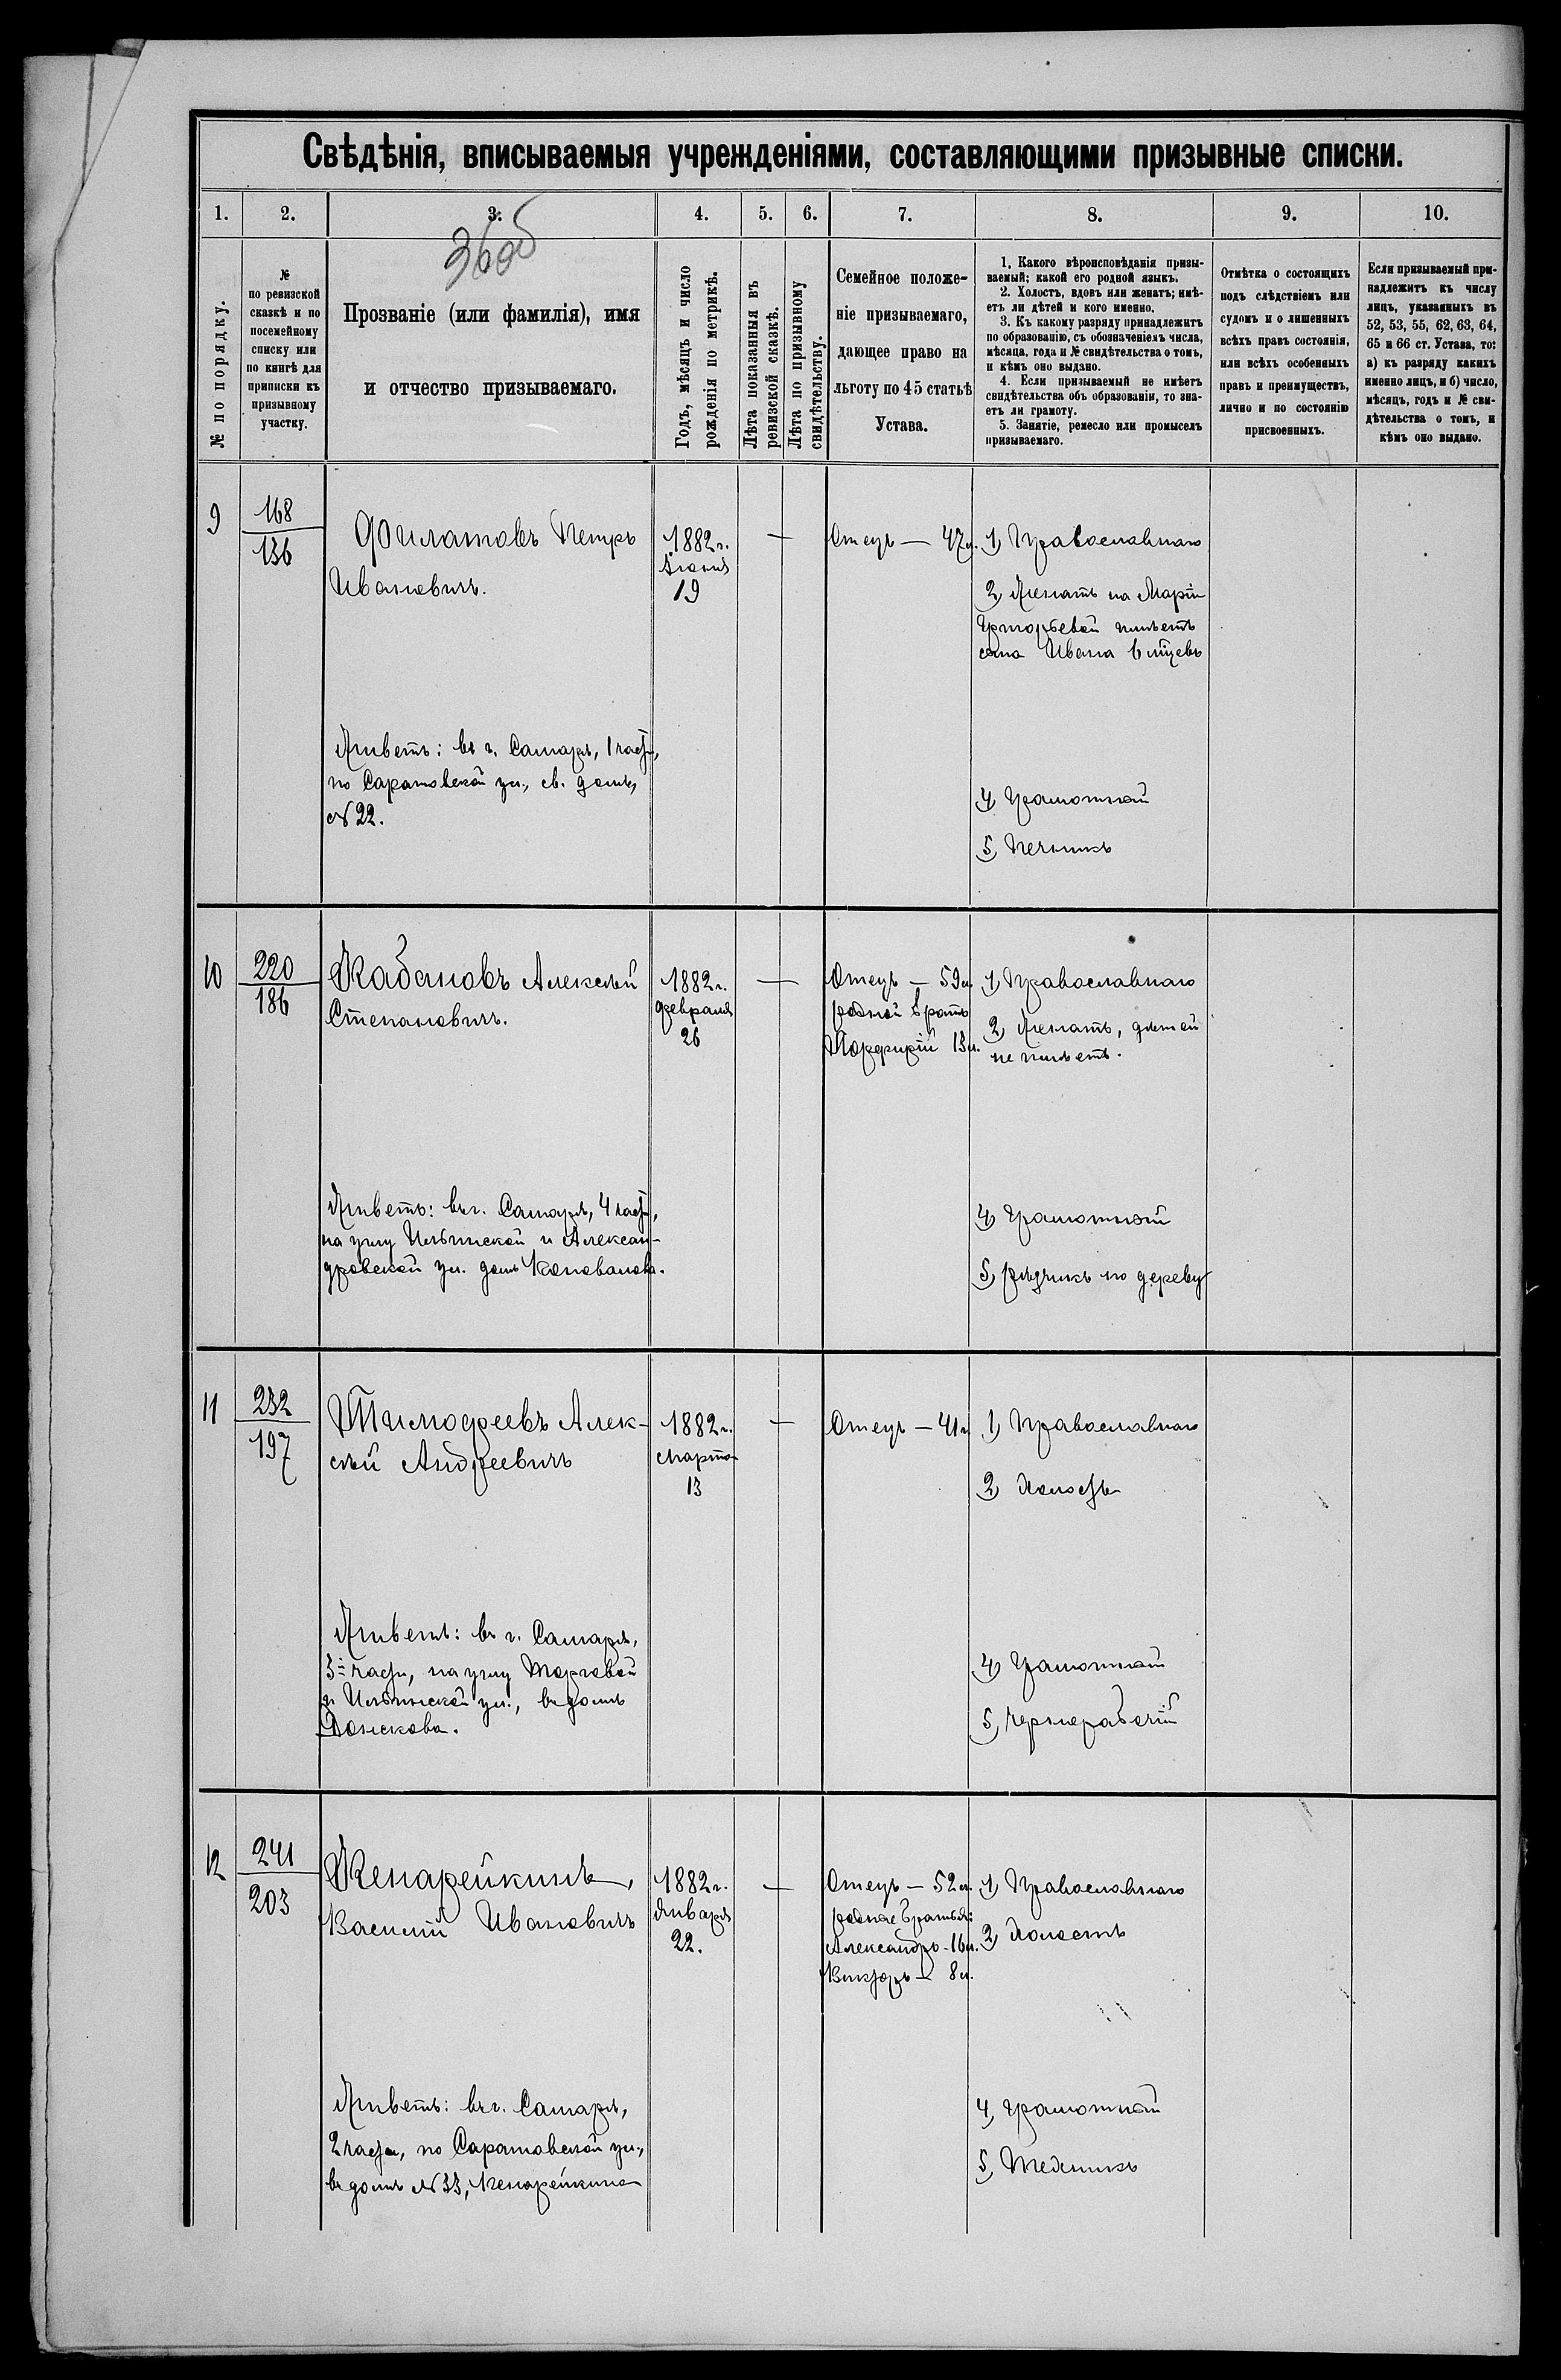 Свѣдѣнія, вписываемыя учрежденіями, составляющими призывные списки.
1. 2. 3. 4. 5. 6. 7. 8. 9. 10.
№ по порядку.
№
по ревизской
сказкѣ и по
посемейному
списку или
по книгѣ для
приписки къ
призывному
участку.
Прозваніе (или фамилія), имя
и отчество призываемаго.
Годъ, мѣсяцъ и число
рожденія по метрикѣ.
Лѣта показанныя въ
ревизской сказкѣ.
Лѣта по призывному
свидѣтельству.
Семейное положе-
ніе призываемаго,
дающее право на
льготу по 45 статьѣ
Устава.
1. Какого вѣроисповѣданія призы-
ваемый; какой его родной языкъ.
2. Холостъ, вдовъ или женатъ; имѣ-
етъ ли дѣтей и кого именно.
3. Къ какому разряду принадлежитъ
по образованію, съ обозначеніемъ числа,
мѣсяца, года и № свидѣтельства о томъ,
и кѣмъ оно выдано.
4. Если призываемый не имѣетъ
свидѣтельства объ образованіи, то зна-
етъ ли грамоту.
5. Занятіе, ремесло или промыселъ
призываемаго.
Отмѣтка о состоящихъ
подъ слѣдствіемъ или
судомъ и о лишенныхъ
всѣхъ правъ состоянія,
или всѣхъ особенныхъ
правъ и преимуществъ,
лично и по состоянію
присвоенныхъ.
Если призываемый при-
надлежитъ къ числу
лицъ, указанныхъ въ
52, 53, 55, 62, 63, 64,
65 и 66 ст. Устава, то:
а) къ разряду какихъ
именно лицъ, и б) число,
мѣсяцъ, годъ и № сви-
дѣтельства о томъ, и
кѣмъ оно выдано.
9
168
136
Филатовъ Петръ
Ивановичъ.
Живетъ: въ г. Самарѣ, 1 части,
по Саратовской ул., св. домъ,
№ 22.
1882 г.
19
—
Отецъ — 47 л.
1) Православнаго
2) Женатъ на Маріи
Григорьевой имѣетъ
сына Ивана 6 мѣсяцевъ
4) Грамотный
5) Печникъ
10
220
186
Кабановъ Алексѣй
Степановичъ.
Живетъ: въ г. Самарѣ, 4 части,
на углу Ильинской и Алексан-
дровской ул. домъ Коновалова.
1882 г.
февраля
26
—
Отецъ — 59 л.
родной братъ
Порфирій 13 л.
1) Православнаго
2) Женатъ, дѣтей
не имѣетъ.
4) Грамотный
5) рѣзчикъ по дереву
11
232
197
Тимофеевъ Алек-
сѣй Андреевичъ
Живетъ: въ г. Самарѣ,
3й части, на углу Торговой
и Ильинской ул., въ домѣ
Донскова.
1882 г.
марта
13
—
Отецъ — 41 г.
1) Православнаго
2) Холостъ
4) Грамотный
5) Чернорабочій
12
241
203
Кенарейкинъ,
Василій Ивановичъ
Живетъ: въ г. Самарѣ,
2 части, по Саратовской ул.,
въ домѣ № 33, Кенарейкина
1882 г.
Января
22.
—
Отецъ — 52 л.
родные братья:
Александръ - 16 л.
Викторъ — 8 л.
1) Православнаго
2) Холостъ
4) Грамотный
5)